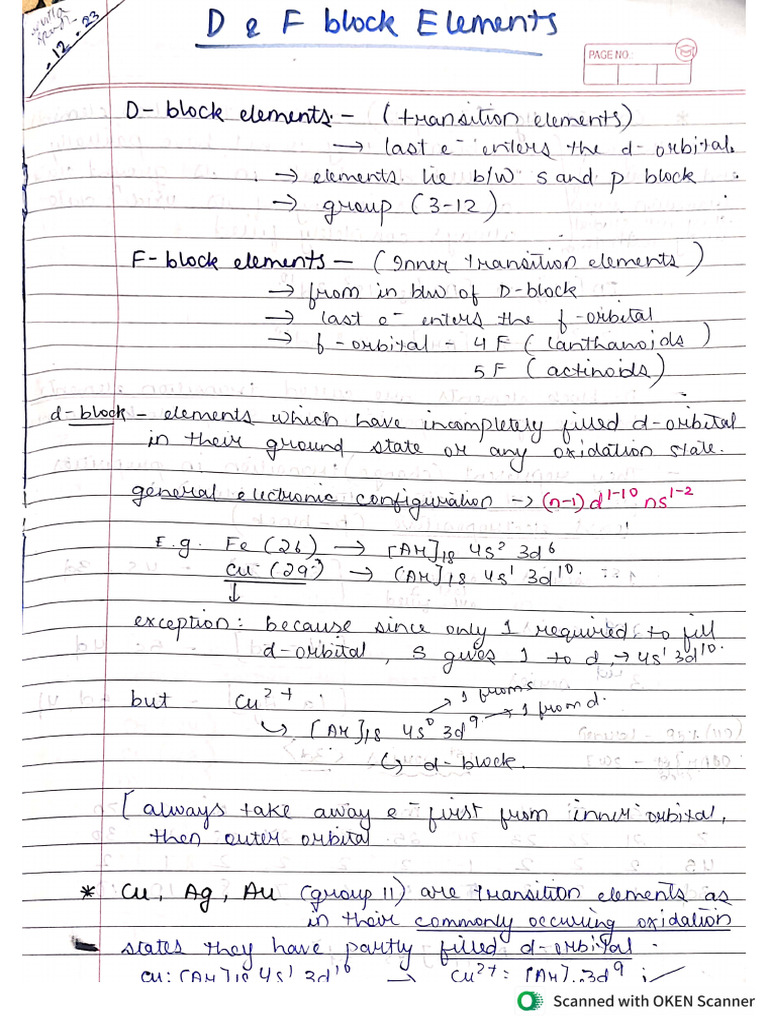 .12.23
D & F block Elements
PAGE NO.:
D- block elements:- (transition elements)
→ last e⁻ enters the d-orbital.
→ elements lie b/w s and p block
→ group (3-12)
F-block elements - (Inner transition elements)
→ from in b/w of D-block
→ last e⁻ enters the f-orbital
→ f-orbital - 4F (lanthanoids)
5F (actinoids)
d-block - elements which have incompletely filled d-orbital
in their ground state or any oxidation state.
general electronic configuration → (n-1)d¹⁻¹⁰ ns¹⁻²
E.g. Fe (26) → [Ar]₁₈ 4s² 3d⁶
Cu (29) → [Ar]₁₈ 4s¹ 3d¹⁰.
↓
exception: because since only 1 required to fill
d-orbital, s gives 1 to d, → 4s¹ 3d¹⁰.
but - Cu²⁺ → 1 from s
↳ [Ar]₁₈ 4s⁰ 3d⁹ → 1 from d.
↳ d-block.
[always take away e⁻ first from inner orbital,
then outer orbital
* Cu, Ag, Au (group 11) are transition elements as
in their commonly occuring oxidation
states they have partly filled d-orbital.
Cu: [Ar]₁₈ 4s¹ 3d¹⁰ → Cu²⁺: [Ar] 3d⁹
Scanned with OKEN Scanner